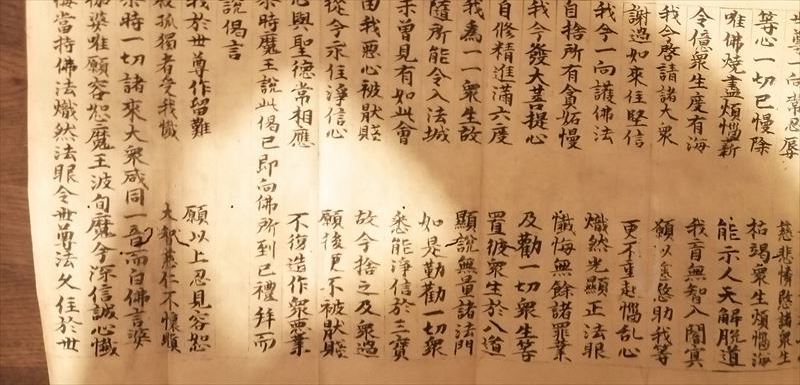 世尊一向常忍辱　慈悲憐愍諸衆生
等心一切已慢除　枯竭衆生煩惱海
唯佛燒盡煩惱薪　能示人天解脱道
令億衆生度有海　我盲無智入闇冥
我今啓請諸大衆　願以慈愍助我等
謝過如來住堅信　更不重起惱乱心
我今一向護佛法　熾然光顯正法眼
自捨所有貪妬慢　懺悔無餘諸罪業
我今發大菩提心　及勸一切衆生等
自修精進滿六度　置彼衆生於八道
我爲一一衆生故　顯説無量諸法門
隨所能令入法城　如是勤勸一切衆
未曾見有如此會　悉能淨信於三寶
由我惡心被猒賤　故今捨之及衆過
從今永住淨信心　願後更不被猒賤
心與聖德常相應　不復造作衆惡業
尒時魔王說此偈已即向佛所到已禮拜而
說偈言
我於世尊作留難　願以上忍見容恕
孤獨者受我懺　大慈仁不懷
尒時一切諸來大衆咸同一音而白佛言婆
伽婆唯願容恕魔王波旬魔今深信誠心懺
悔當持佛法熾然法眼令世尊法久住於世